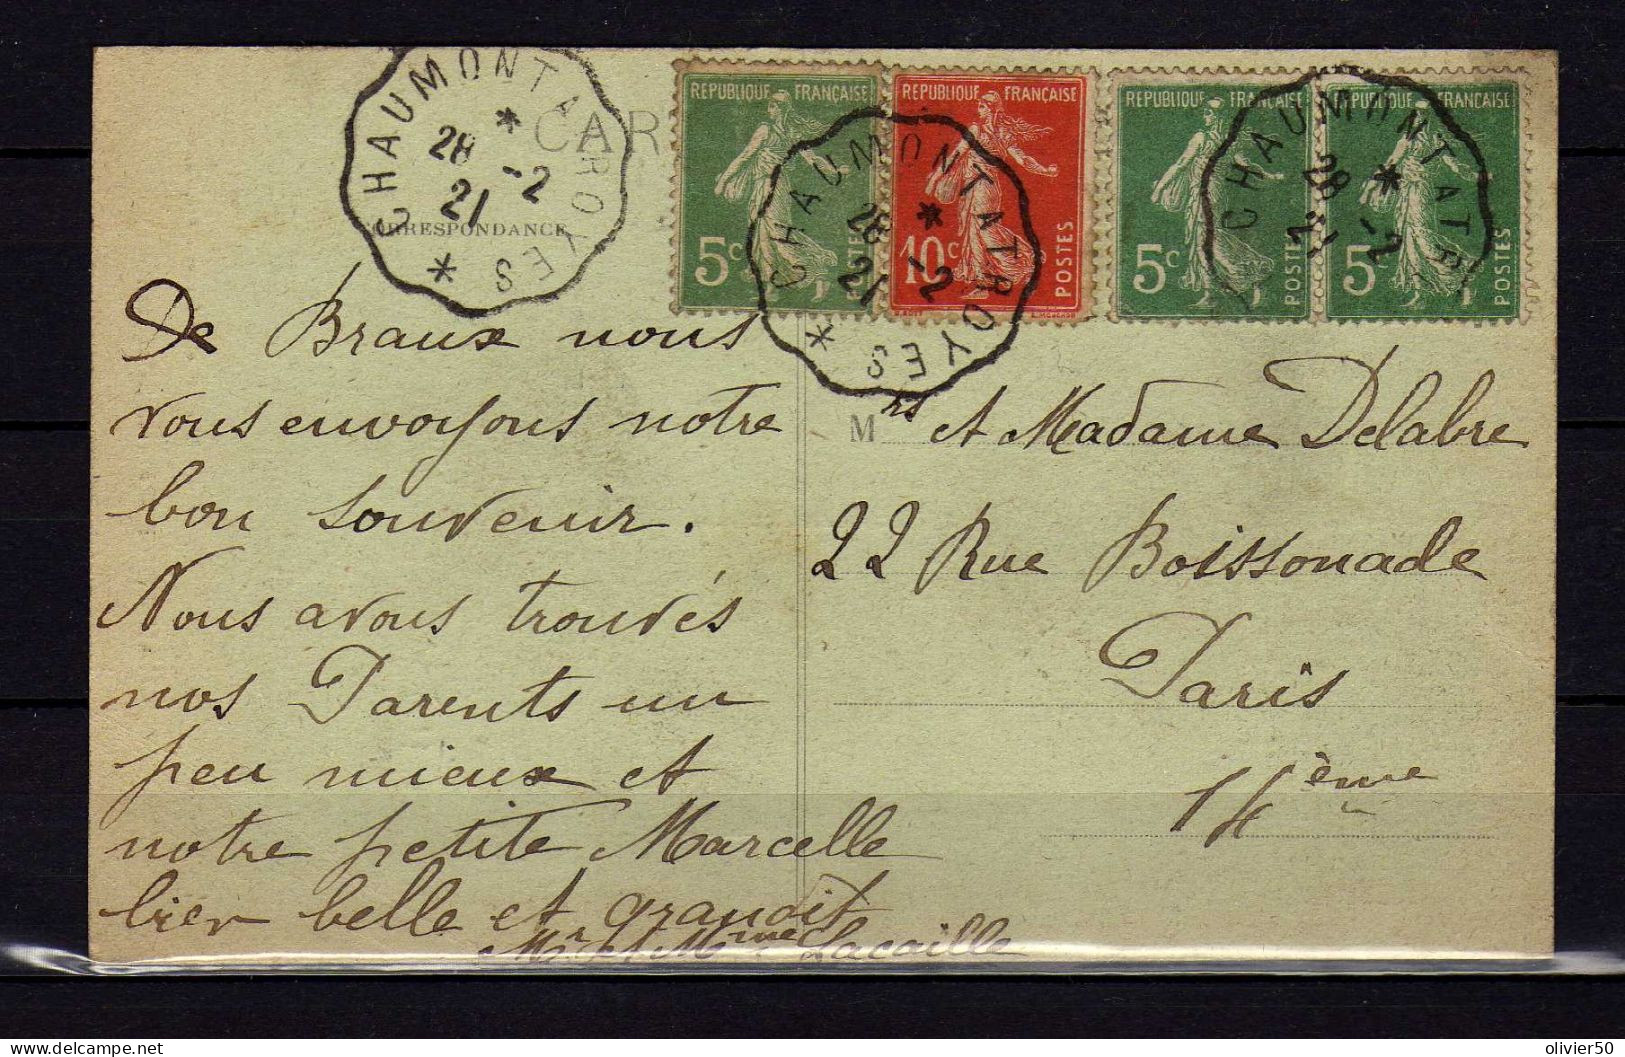 CHAUMONT A TROYES
28 -2
21
CAR
CORRESPONDANCE
REPUBLIQUE FRANÇAISE
5c
POSTES
REPUBLIQUE FRANÇAISE
10c
POSTES
CHAUMONT A TROYES
28 -2
21
REPUBLIQUE FRANÇAISE
5c
POSTES
REPUBLIQUE FRANÇAISE
5c
POSTES
CHAUMONT A TR
28 -2
21
De Braux nous
vous envoyons notre
bon souvenir.
Nous avons trouvés
nos Parents un
peu mieux et
notre petite Marcelle
bien belle et grandit
Mr et Mme Lacaille
Mrs et Madame Delabre
22 Rue Boissonade
Paris
14ème
delcampe.net
olivier50